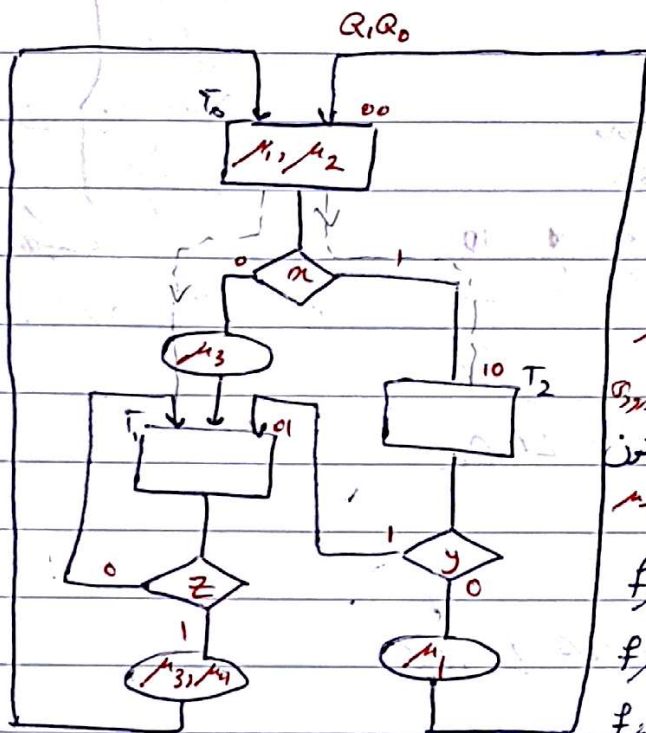 Q₁Q₀
T₀ 00
μ₁, μ₂
0 x 1
μ₃
10 T₂
T₁ 01
1 y
0 z 0
1
μ₃, μ₄ μ₁
f
f
f